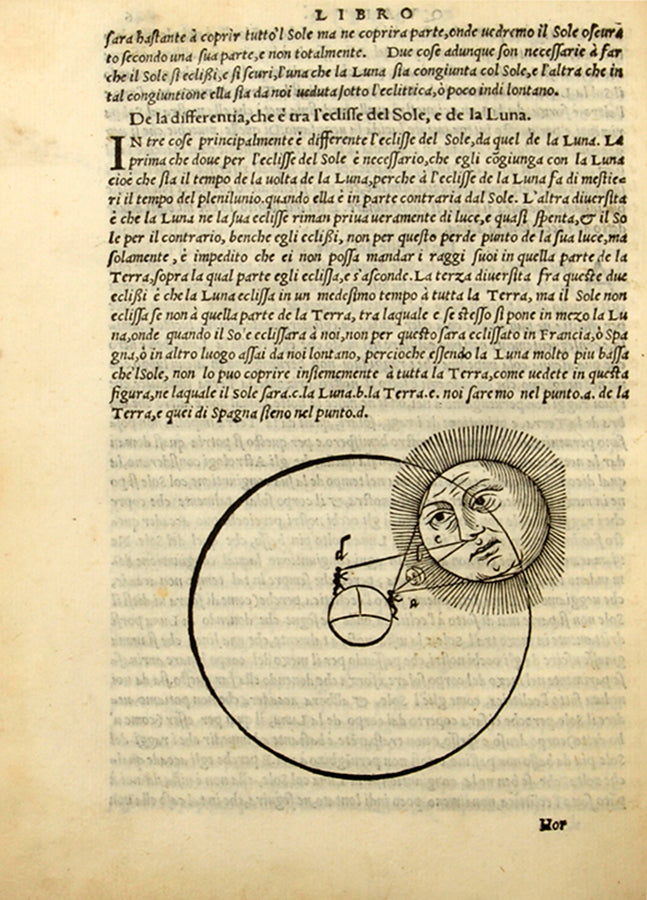 LIBRO
sara bastante à coprir tutto'l Sole ma ne coprira parte, onde uedremo il Sole oscura
to secondo una sua parte, e non totalmente. Due cose adunque son necessarie à far
che il Sole si eclißi, e si scuri, l'una che la Luna sia congiunta col Sole, e l'altra che in
tal congiuntione ella sia da noi ueduta sotto l'eclittica, ò poco indi lontano.
De la differentia, che è tra l'eclisse del Sole, e de la Luna.
IN tre cose principalmente è differente l'eclisse del Sole, da quel de la Luna. La
prima che doue per l'eclisse del Sole è necessario, che egli cõgiunga con la Luna
cioè che sia il tempo de la uolta de la Luna, perche à l'eclisse de la Luna fa di mestie-
ri il tempo del plenilunio. quando ella è in parte contraria dal Sole. L'altra diuersita
è che la Luna ne la sua eclisse riman priua ueramente di luce, e quasi spenta, & il So
le per il contrario, benche egli eclißi, non per questo perde punto de la sua luce, ma
solamente, è impedito che ei non possa mandar i raggi suoi in quella parte de la
Terra, sopra la qual parte egli eclissa, e s'asconde. La terza diuersita fra queste due
eclißi è che la Luna eclissa in un medesimo tempo à tutta la Terra, ma il Sole non
eclissa se non à quella parte de la Terra, tra laquale e se stesso si pone in mezo la Lu
na, onde quando il So'e eclissara à noi, non per questo sara eclissato in Francia, ò Spa
gna, ò in altro luogo assai da noi lontano, percioche essendo la Luna molto piu bassa
che'l Sole, non lo puo coprire insiememente à tutta la Terra, come uedete in questa
figura, ne laquale il Sole sara .c. la Luna .b. la Terra .e. noi saremo nel punto .a. de la
Terra, e quei di Spagna sieno nel punto .d.
c
d
a
Hor